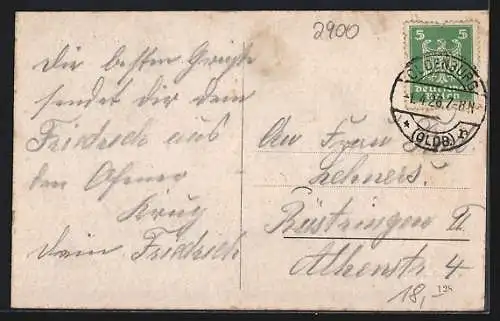 2900
Die besten Grüße
sendet dir dein
Friedrich aus
den Ohmer
Krug
Dein Friedrich
5 5
Deutsches
Reich
OLDENBURG
26.7-8N
* (OLDB.) h
An Frau
Lehners.
Rüstringen II
Athenstr 4
18,-
128